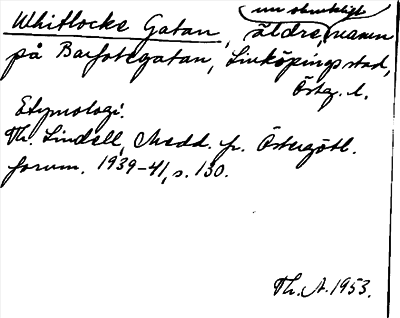 nu obrukligt
Whitlocks Gatan, äldre, namn
på Barfotegatan, Linköpings stad,
Östg. l.
Etymologi.
Th. Lindell, Medd. fr. Östergötl.
forum. 1939-41, s. 130.
Th. A. 1953.